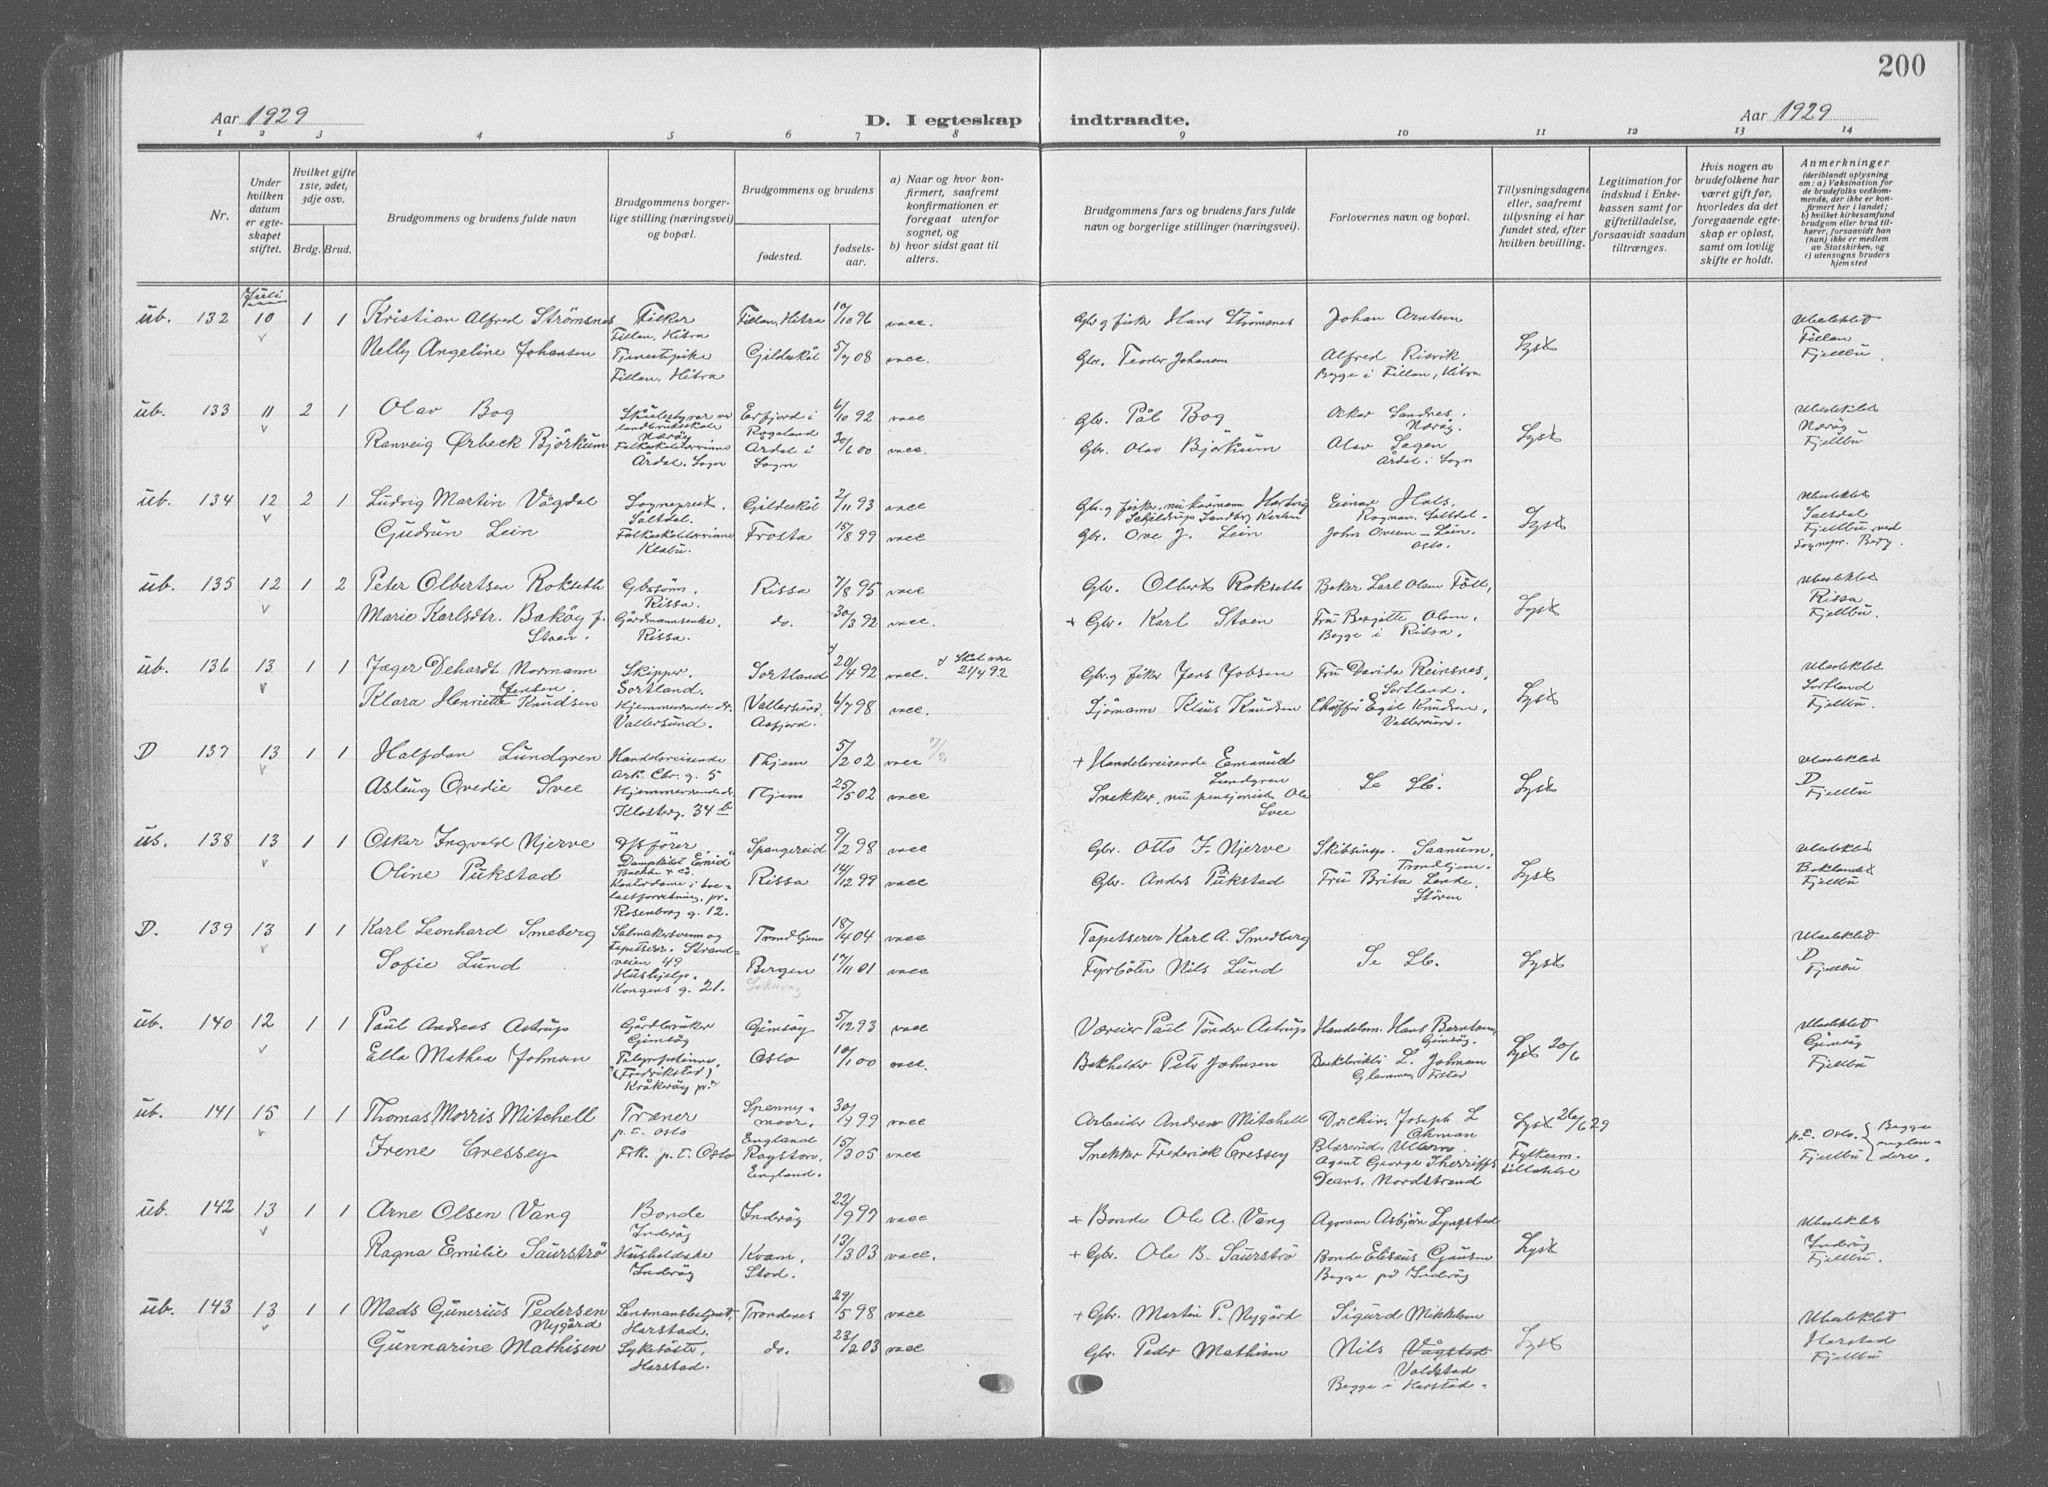 200
Aar 1929
D. I egteskap indtraadte.
Aar 1929
1 2 3 4 5 6 7 8 9 10 11 12 13 14
Nr.
Under hvilken datum er egteskapet stiftet.
Hvilket gifte 1ste, 2det, 3dje osv.
Brdg. Brud.
Brudgommens og brudens fulde navn
Brudgommens borgerlige stilling (næringsvei) og bopæl.
Brudgommens og brudens
fødested.
fødselsaar.
a) Naar og hvor konfirmert, saafremt konfirmationen er foregaat utenfor sognet, og
b) hvor sidst gaat til alters.
Brudgommens fars og brudens fars fulde navn og borgerlige stillinger (næringsvei).
Forlovernes navn og bopæl.
Tillysningsdagene eller, saafremt tillysning ei har fundet sted, efter hvilken bevilling.
Legitimation for indskud i Enkekassen samt for giftetilladelse, forsaavidt saadan tiltrænges.
Hvis nogen av brudefolkene har været gift før, hvorledes da det foregaaende egteskap er opløst, samt om lovlig skifte er holdt.
Anmerkninger (deriblandt oplysning om: a) Vaksination for de brudefolks vedkommende, der ikke er konfirmert her i landet; b) hvilket kirkesamfund brudgom eller brud tilhører, forsaavidt han (hun) ikke er medlem av Statskirken, og c) utensogns bruders hjemsted
Juli
ub. 132 10 1 1 Kristian Alfred Strömsnes Fisker Fillan, Hitra Fillan, Hitra 10/10 96 vacc. Gbr. og fisk. Hans Strömsnes Johan Arntsen Lyst Ubeslektet Fillan
Nelly Angeline Johansen Tjenestepike Fillan, Hitra Gildeskål 5/7 08 vacc. Gbr. Teodor Johansen Alfred Risvik Begge i Fillan, Hitra Fjellbu.
ub. 133 11 2 1 Olav Bog landbruksskole Nærøy Erfjord i Rogaland 6/10 92 vacc Gbr. Pål Bog Oskar Sandnes. Nærøy. Lyst Ubeslektet Nærøy
Ranveig Ørbeck Björkum Årdal. Sogn Årdal i Sogn 30/6 00 vacc. Gbr. Olav Björkum Olav Årdal i Sogn Fjellbu
ub. 134 12 2 1 Ludvig Martin Vågdal Sogneprest. Saltdal. Gildeskål 2/11 93 vacc Einar Hals, Rognan, Saltdal. Lyst Ubeslektet Saltdal
Gudrun Lein Klæbu. Frosta 15/8 99 vacc. Gbr. Ove J. Lein Oslo. Fjellbu ved Sognepr. Berg.
ub. 135 12 1 2 Peter Olbertsen Rokseth Gbrsönn. Rissa. Rissa 7/8 95 vacc Gbr. Olbert Rokseth Baker Carl Olsen Lyst Ubeslektet Rissa
Marie Karlsdtr. Bakøy f. Støen. Gårdmannsenke. Rissa. do. 30/3 92 vacc. + Gbr. Karl Støen Fru Bergitte Olsen. Begge i Rissa. Fjellbu.
ub. 136 13 1 1 Jæger Dehardt Normann Jensen. Skipper. Sortland. Sortland 20/4 92 vacc. Skal være 21/4 92 Gbr. og fisker Jens Jobsen Fru Davida Reinsnes, Sortland. Lyst Ubeslektet Sortland
Klara Henriette Knudsen Vallersund. Vallersund, Aafjord. 6/7 98 vacc. Sjömann Klaus Knudsen Chauffør Egil Knudsen, Vallersund. Fjellbu.
D 137 13 1 1 Halfdan Lundgren Handelsreisende Ark. Chr. g. 5 Thjem 5/2 02 vacc + Handelsreisende Emanuel Lundgren Se Lb. Lyst Ubeslektet D
Aslaug Ovedie Svee Klosterg. 34 b Thjem 25/5 02 vacc Snekker, nu pensjonist Ole Svee Fjellbu
ub. 138 13 1 1 Oskar Ingvald Njerve Spangereid 9/2 98 vacc Gbr. Otto F. Njerve Skibsinsp. Saanum, Trondhjem. Lyst Ubeslektet
Oline Pukstad Kontordame Rosenborg g. 12. Rissa 14/12 99 vacc Gbr. Anders Pukstad Fru Brita Lende, Stören Fjellbu
D. 139 13 1 1 Karl Leonhard Smeberg Salmakersvenn og Tapetserer. Strandveien 49 Trondhjem 18/4 04 vacc Tapetserer Karl A. Smedberg Se Lb. Lyst Ubeslektet D
Sofie Lund Hushjelp. Kongens g. 21. Bergen 17/11 01 vacc Fyrböter Nils Lund Fjellbu
ub. 140 12 1 1 Paul Andreas Astrup Gårdbruker Gimsöy Gimsöy 5/12 93 vacc Væreier Paul Tönder Astrup Handelsm. Hans Berntsen, Gimsöy. Lyst 20/6 Ubeslektet Gimsöy
Ella Mathea Johnsen (Fredrikstad) Kråkeröy pr.gj. Oslo 10/1 00 vacc. Bokholder Peter Johnsen L. Johnsen Fjellbu
ub. 141 15 1 1 Thomas Morris Mitchell Træner p.t. Oslo Spennymoor, England 30/9 99 vacc Arbeider Andrew Mitchell Joseph L Lyst 26/6 29 p.t. Oslo. Begge englendere.
Irene Cressey Frk. p.t. Oslo Royston, England. 15/3 05 vacc. Snekker Frederick Cressey Ullern. Agent George Nordstrand Fylkesm. tillatelse Fjellbu
ub. 142 13 1 1 Arne Olsen Vang Bonde Inderøy Inderøy 22/9 97 vacc + Bonde Ole A. Vang Agronom Asbjörn Lyngstad Lyst Ubeslektet Inderöy
Ragna Emilie Saurströ Husholderske Inderöy Kvam, Stod. 13/3 03 vacc. + Gbr. Ole B. Saurströ Bonde Elisæus Gausen Begge på Inderöy Fjellbu.
ub. 143 13 1 1 Mads Gunerius Pedersen Nygård Lensmannsbetjent, Harstad. Trondenes 29/5 98 vacc + Gbr. Martin P. Nygård Sigurd Mikkelsen Lyst Ubeslektet Harstad
Gunnarine Mathisen Sykesöster, Harstad. do. 23/2 03 vacc Gbr. Peder Mathisen Nils Vågstad Valdstad Begge i Harstad. Fjellbu